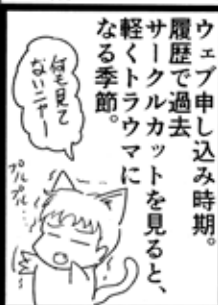 ウェブ申し込み時期。
履歴で過去
サークルカットを見ると、
軽くトラウマに
なる季節。
何も見て
ないニャー
プルプル…